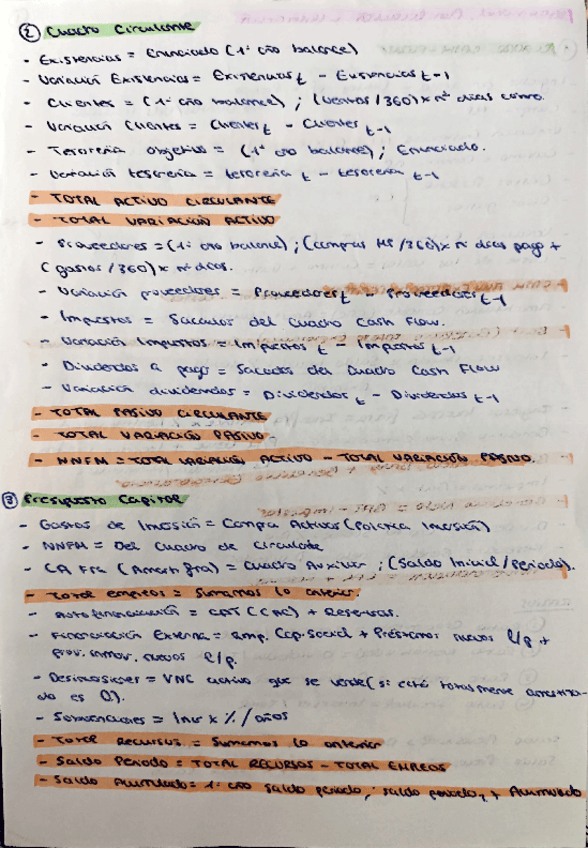 ② Cuadro Circulante
- Existencias = Enunciado (1er año balance)
- Variación Existencias = Existencias t - Existencias t-1
- Clientes = (1er año balance) ; (Ventas/360) x nº días cobro.
- Variación Clientes = Clientes t - Clientes t-1
- Tesorería objetivo = (1er año balance) ; Enunciado.
- Variación tesorería = tesorería t - tesorería t-1
- TOTAL ACTIVO CIRCULANTE
- TOTAL VARIACIÓN ACTIVO
- Proveedores = (1er año balance) ; (compras MP/360) x nº días pago +
(gastos/360) x nº días.
- Variación proveedores = Proveedores t - Proveedores t-1
- Impuestos = Sacados del Cuadro Cash Flow.
- Variación Impuestos = Impuestos t - Impuestos t-1
- Dividendos a pagar = Sacados del Cuadro Cash Flow
- Variación dividendos = Dividendos t - Dividendos t-1
- TOTAL PASIVO CIRCULANTE
- TOTAL VARIACIÓN PASIVO
- NNFM = TOTAL VARIACIÓN ACTIVO - TOTAL VARIACIÓN PASIVO
③ Presupuesto Capital
- Gastos de Inversión = Compra Activos (Política Inversión)
- NNFM = Del Cuadro de Circulante
- CA Fra (Amort fra) = Cuadro Auxiliar ; (Saldo Inicial/Periodo).
- Total empleos = Sumamos lo anterior.
- Autofinanciación = CAT (CAE) + Reservas.
- Financiación Externa = amp. Cap. Social + Préstamos nuevos l/p +
prov. inmov. nuevos l/p.
- Desinversiones = VNC activo que se vende (si está totalmente amortiza-
do es 0).
- Subvenciones = Inv x % / años
- Total Recursos = Sumamos lo anterior
- Saldo Periodo = TOTAL RECURSOS - TOTAL EMPLEOS
- Saldo Acumulado = 1er año saldo periodo ; saldo periodo + Acumulado